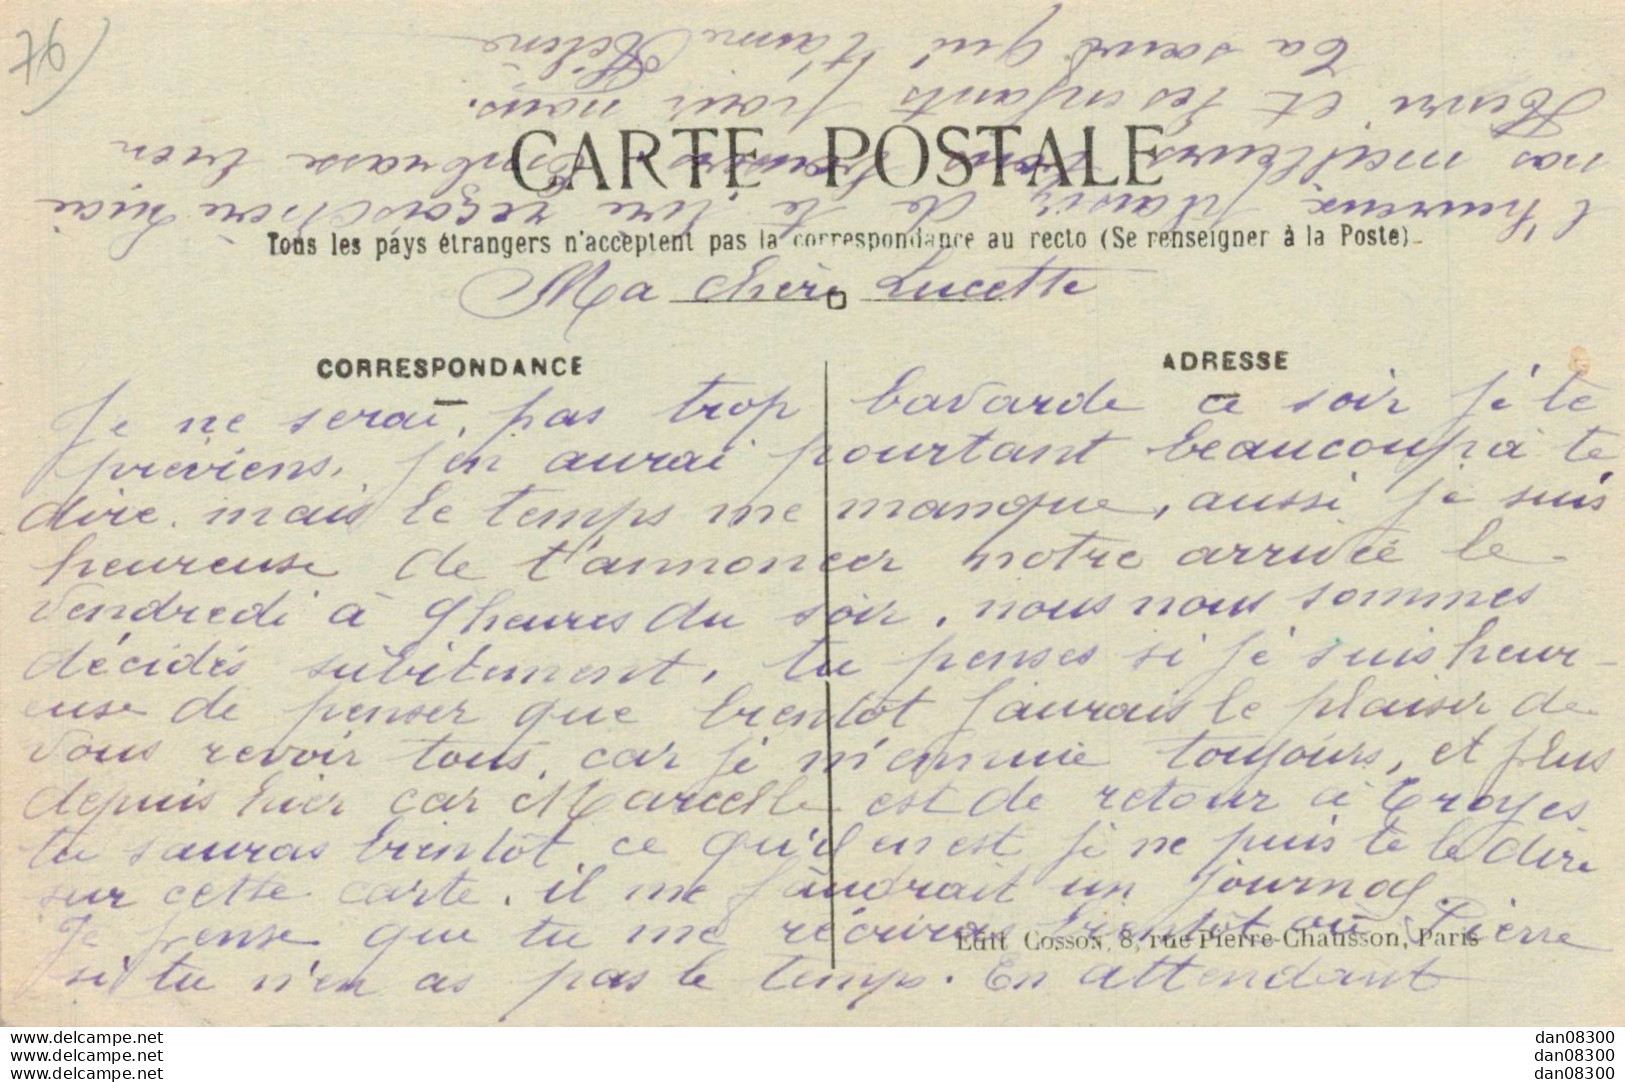 76
CARTE POSTALE
Tous les pays étrangers n'acceptent pas la correspondance au recto (Se renseigner à la Poste)
Ma chère Lucette
CORRESPONDANCE
ADRESSE
Je ne serai pas trop bavarde ce soir je te
préviens, j'en aurai pourtant beaucoup à te
dire, mais le temps me manque, aussi je suis
heureuse de t'annoncer notre arrivée le
Vendredi à 9 heures du soir, nous nous sommes
décidés subitement, tu penses si je suis heur-
euse de penser que bientôt j'aurais le plaisir de
vous revoir tous, car je m'ennuie toujours, et plus
depuis hier car Marcelle est de retour à Troyes
tu sauras bientôt ce qu'il en est je ne puis te le dire
sur cette carte. il me faudrait un journal.
Je pense que tu me récriras bientôt ou Pierre
si tu n'en as pas le temps. En attendant
Edit Cosson, 8, rue Pierre-Chausson, Paris
l'heureux plaisir de te lire reçois chère
nos meilleurs baisers. Embrasse bien
Henri et les enfants pour nous.
Ta sœur qui t'aime
Hélène
www.delcampe.net
www.delcampe.net
www.delcampe.net
dan08300
dan08300
dan08300